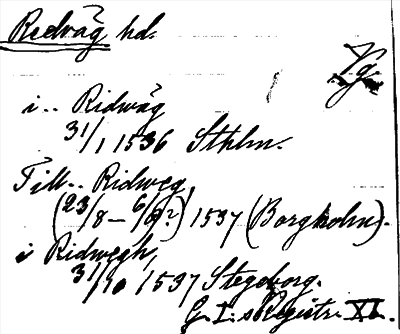 Ridväg hd.
Vg.
i.. Ridwäg
31/1 1536 Sthlm.
Till.. Ridweg,
(23/8 – 6/9?) 1537 (Borgholm).
i Ridwegh,
31/10 1537 Stegeborg.
G. I:s Registr. XI.